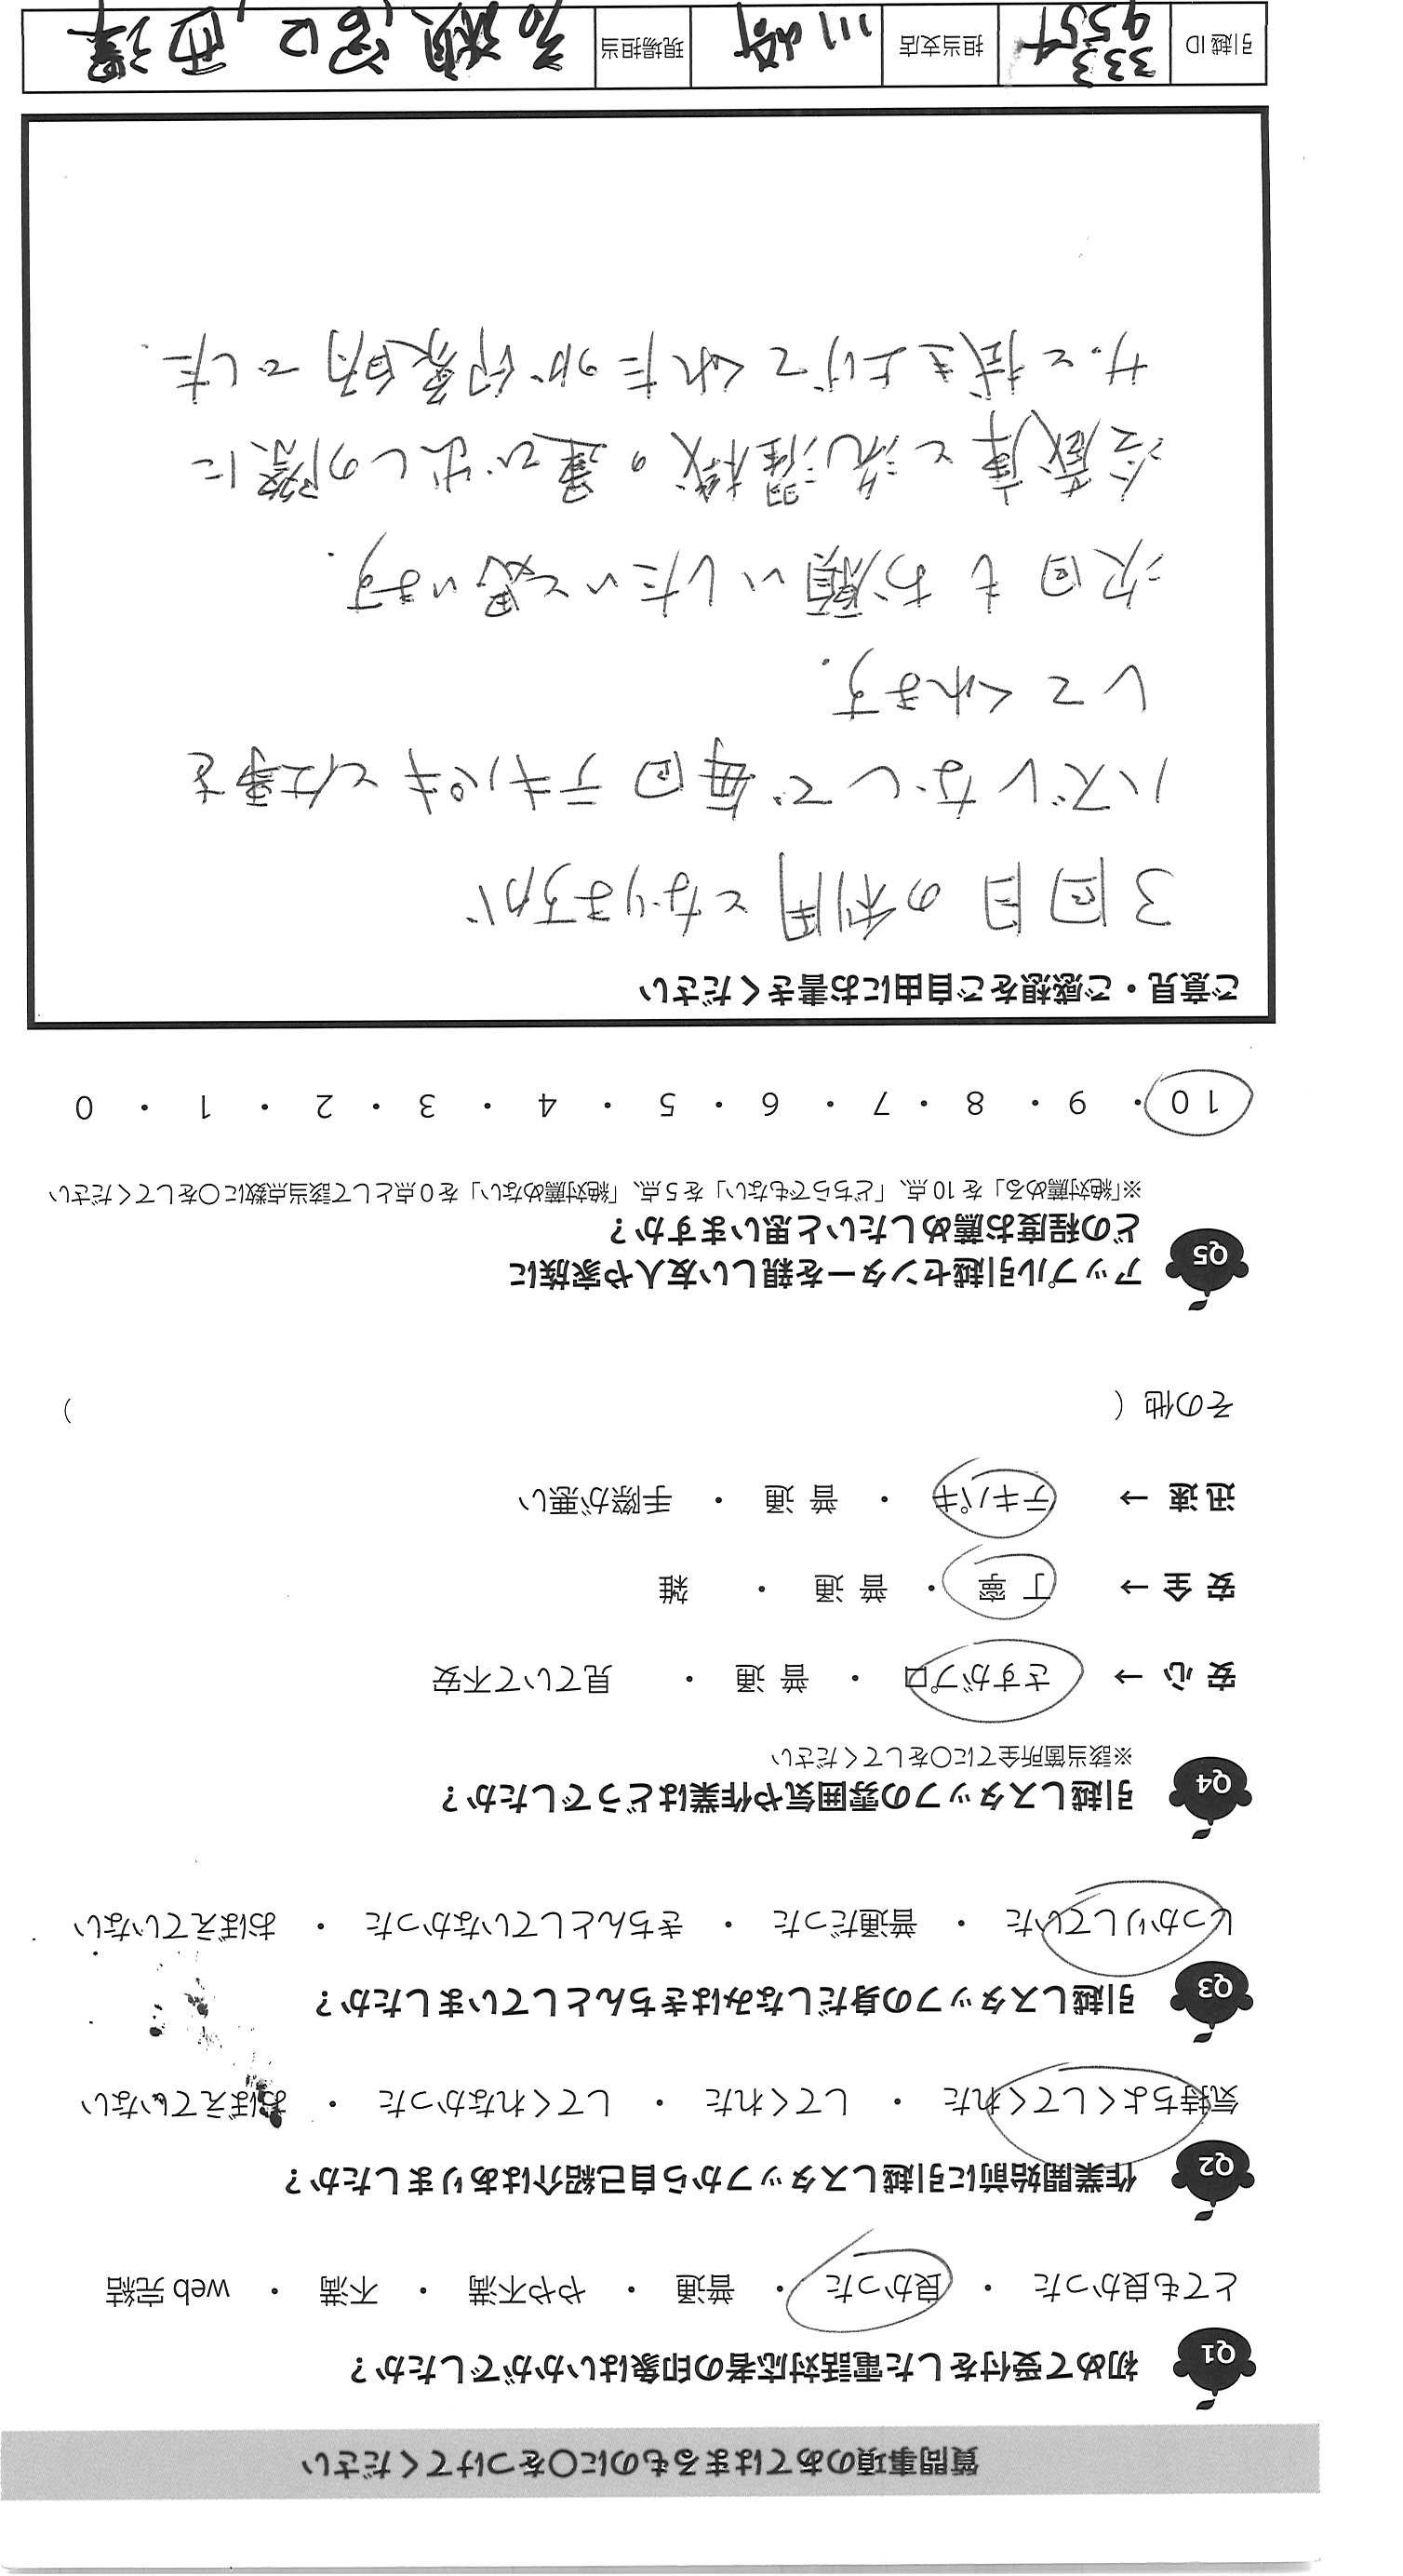 質問事項のあてはまるものに○をつけてください
Q1 初めて受付をした電話対応者の印象はいかがでしたか？
とても良かった ・ 良かった ・ 普通 ・ やや不満 ・ 不満 ・ web 完結
Q2 作業開始前に引越しスタッフから自己紹介はありましたか？
気持ちよくしてくれた ・ してくれた ・ してくれなかった ・ おぼえていない
Q3 引越しスタッフの身だしなみはきちんとしていましたか？
しっかりしていた ・ 普通だった ・ きちんとしていなかった ・ おぼえていない
Q4 引越しスタッフの雰囲気や作業はどうでしたか？
※該当箇所全てに○をしてください
安心 → さすがプロ ・ 普通 ・ 見ていて不安
安全 → 丁寧 ・ 普通 ・ 雑
迅速 → テキパキ ・ 普通 ・ 手際が悪い
その他 （ ）
Q5 アップル引越センターを親しい友人や家族に
どの程度お薦めしたいと思いますか？
※「絶対薦める」を 10 点、「どちらでもない」を 5 点、「絶対薦めない」を 0 点として該当点数に○をしてください
10 ・ 9 ・ 8 ・ 7 ・ 6 ・ 5 ・ 4 ・ 3 ・ 2 ・ 1 ・ 0
ご意見・ご感想をご自由にお書きください
3回目の利用となりますが
ハズレなしで毎回テキパキと仕事を
してくれます.
次回もお願いしたいと思います.
冷蔵庫と洗濯機の運び出しの際に
サッと拭き上げてくれたのが印象的でした.
引越ID 333 955 担当支店 川崎 現場担当 西澤